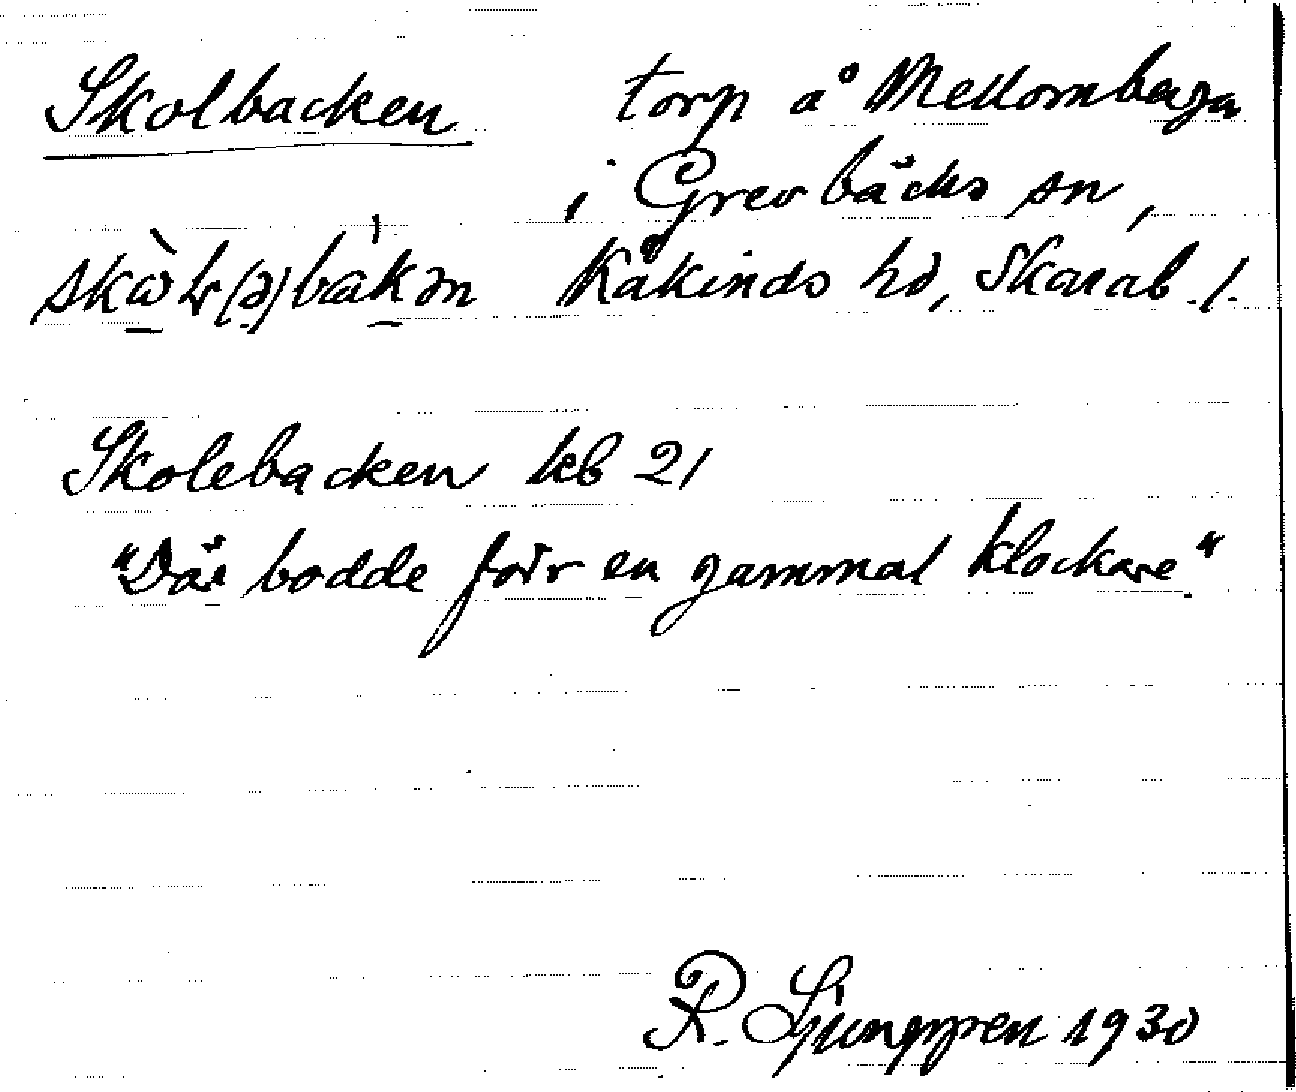 Skolbacken torp å Mellomberga
i Grevbäcks sn,
skàlr(ə)bàkən Kåkinds hd, Skarab. l.
Skolebacken kb 21
"Där bodde förr en gammal klockare"
R. Ljunggren 1930